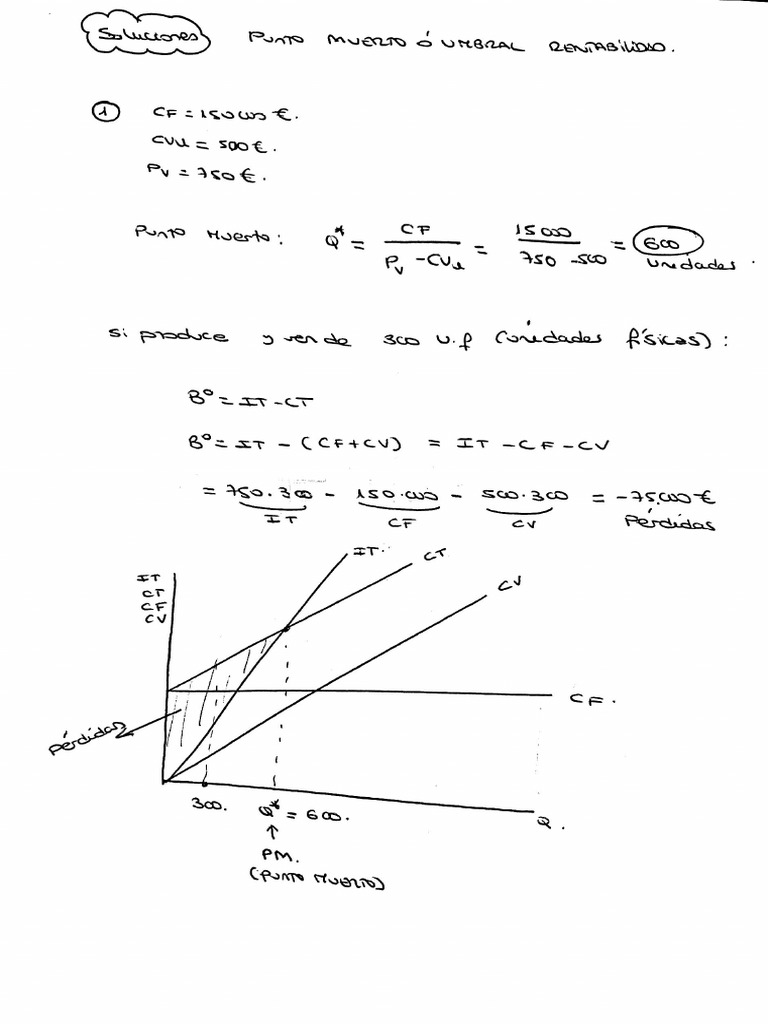 Soluciones PUNTO MUERTO Ó UMBRAL RENTABILIDAD.
1 CF = 150000 €.
CVu = 500 €.
Pv = 750 €.
Punto Muerto: Q* = CF / Pv - CVu = 15000 / 750 - 500 = 600 unidades.
si produce y vende 300 u.f (unidades físicas):
Bº = IT - CT
Bº = IT - (CF + CV) = IT - CF - CV
= 750·300 - 150.000 - 500·300 = -75.000 €
IT CF CV Pérdidas
IT. CT
IT
CT CV
CF
CV
CF.
Pérdidas
300. Q* = 600. Q.
↑
PM.
(PUNTO MUERTO)